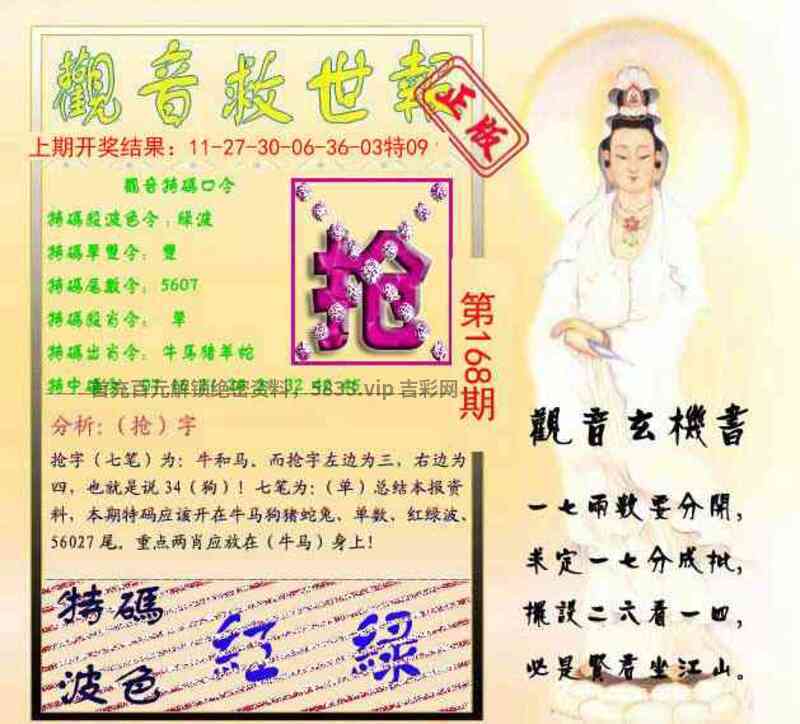 觀音救世報
正版
上期开奖结果：11-27-30-06-36-03特09
觀音特碼口令
特碼殺波色令：綠波
特碼單雙令：雙
特碼尾數令：5607
特碼殺肖令：單
特碼出肖令：牛马猪羊蛇
首充百元解锁绝密资料，5833.vip 吉彩网
抢
第168期
分析:（抢）字
抢字（七笔）为：牛和马．而抢字左边为三，右边为
四，也就是说 34（狗）！七笔为:（单）总结本报资
料，本期特码应该开在牛马狗猪蛇兔、单数、红绿波、
56027 尾．重点两肖应放在（牛马）身上！
特碼
波色
紅 綠
觀音玄機書
一七兩數要分開，
求定一七分成批，
擺設二六看一四，
必是賢君坐江山。